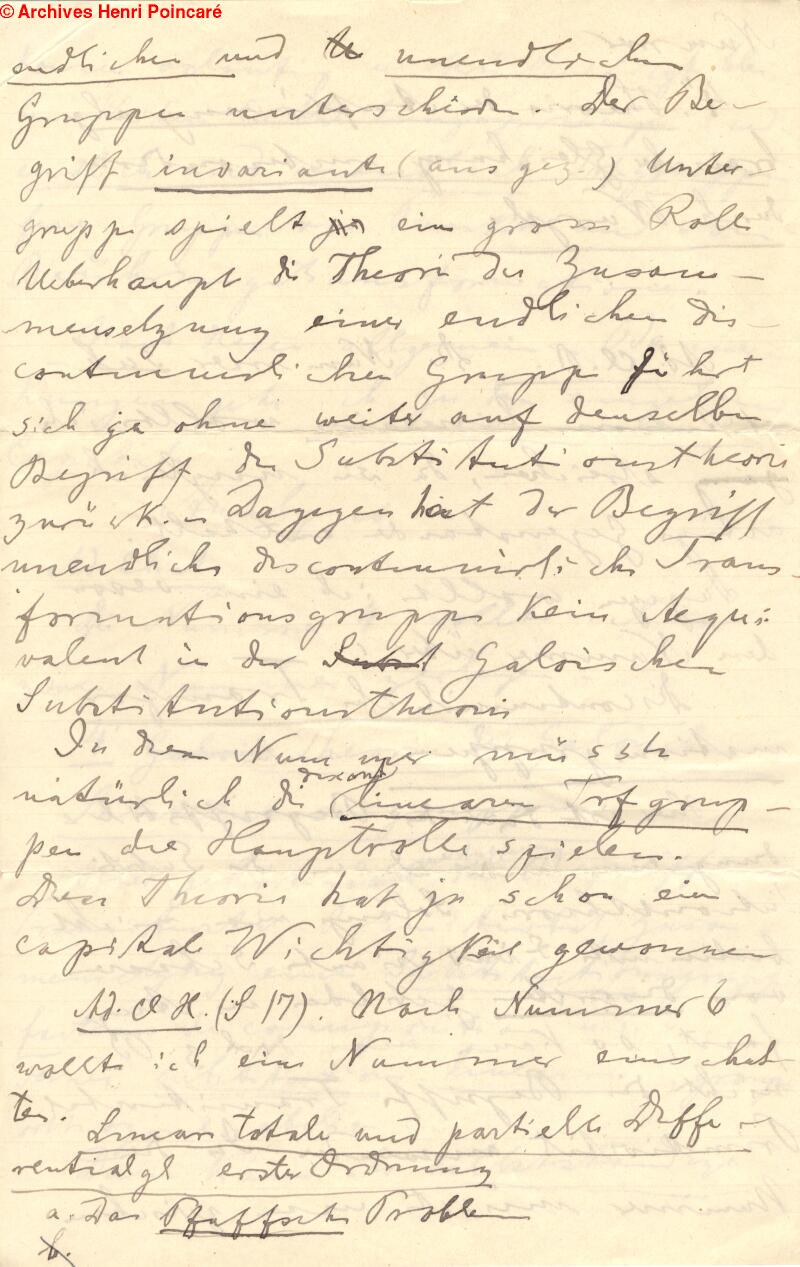 © Archives Henri Poincaré
endlichen und unendlichen
Gruppen unterschieden. Der Be-
griff invariante (ausgez.) Unter-
gruppe spielt ja eine grosse Rolle
Ueberhaupt die Theorie der Zusam-
mensetzung einer endlichen dis-
continuirlichen Gruppe führt
sich ja ohne weiter auf denselben
Begriff der Substitutionstheorie
zurück. Dagegen hat der Begriff
unendliche discontinuirliche Trans-
formationsgruppe kein Aequi-
valent in der Subst Galoischen
Substitutionstheorie
In dieser Nummer müsste
natürlich die discont linearen Trfgrup-
pen die Hauptrolle spielen.
Diese Theorie hat ja schon eine
capitale Wichtigkeit gewonnen
Ad. H. (S 17). Nach Nummer 6
wollte ich eine Nummer einschal-
ten.
Lineare totale und partielle Diffe-
rentialgl erster Ordnung
a. Das Pfaffsche Problem
b.